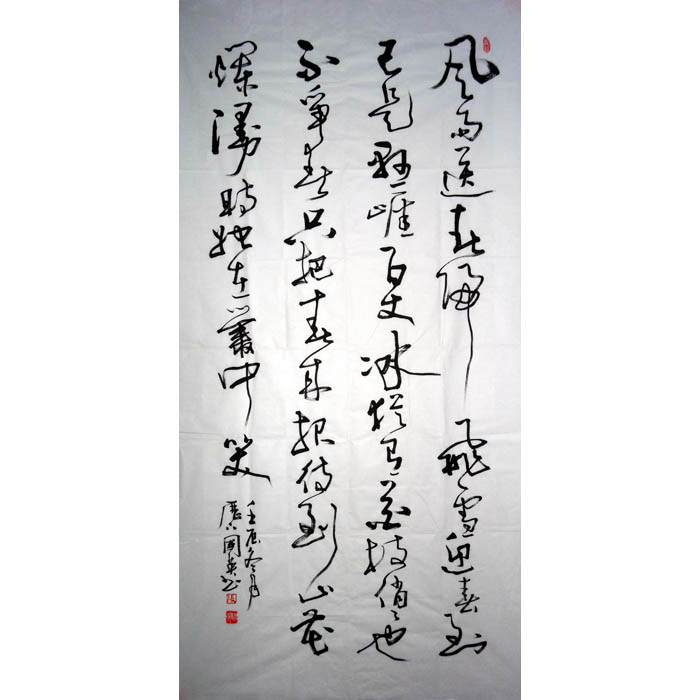 风雨送春归飛雪迎春到
已是悬崖百丈冰猶有花枝俏俏也
不争春只把春来报待到山花
爛漫時她在叢中笑
壬辰冬月
國英书